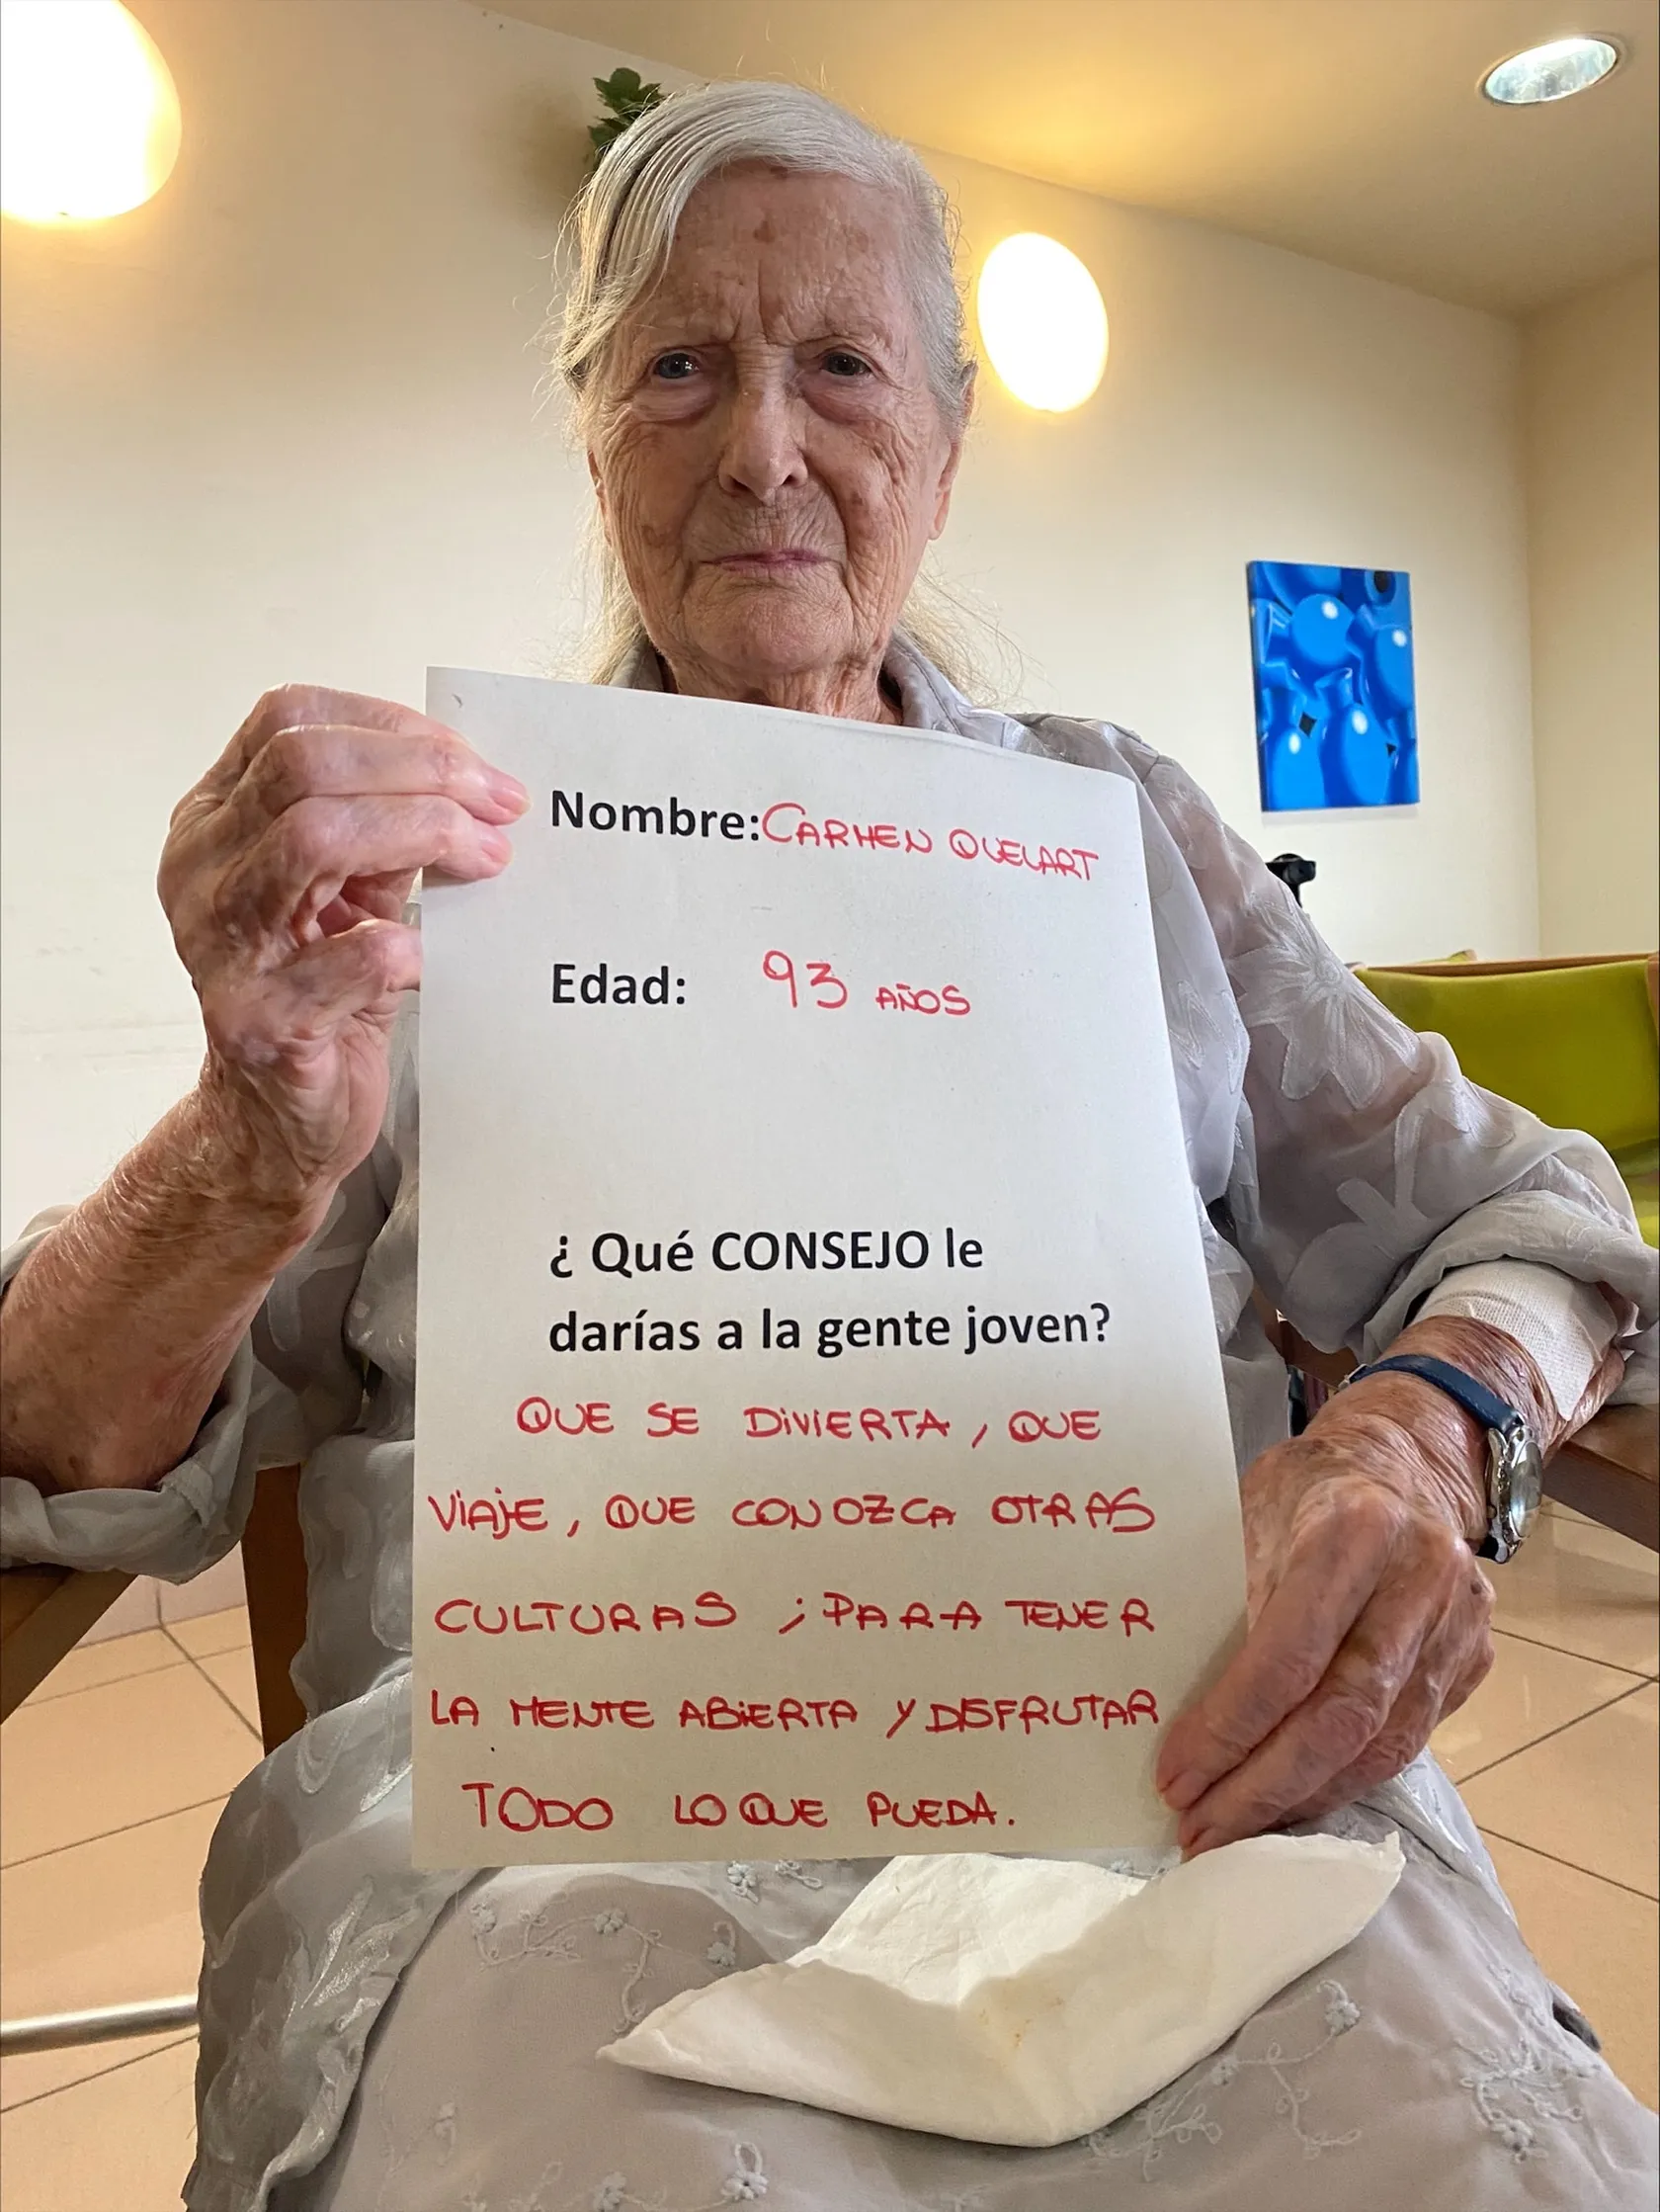 Nombre: CARMEN QUELART
Edad: 93 AÑOS
¿ Qué CONSEJO le
darías a la gente joven?
QUE SE DIVIERTA, QUE
VIAJE, QUE CONOZCA OTRAS
CULTURAS ; PARA TENER
LA MENTE ABIERTA Y DISFRUTAR
TODO LO QUE PUEDA.